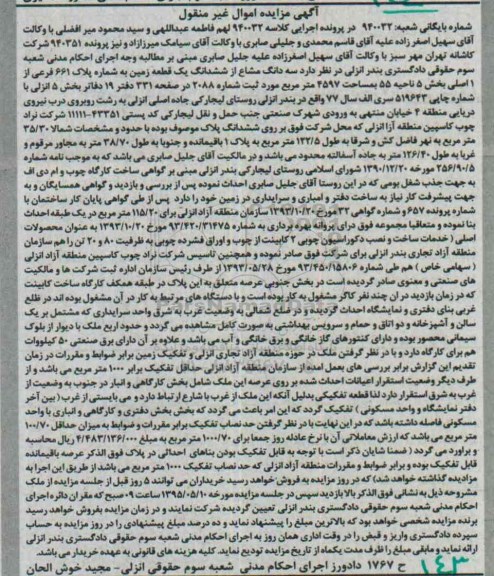 آگهی مزایده اموال غیر منقول
شماره بایگانی شعبه: ۹۴۰۰۳۲ در پرونده اجرایی کلاسه ۹۴۰۰۳۳ لهم فاطمه عبداللهی و سید محمود میر افضلی با وکالت
آقای سهیل اصغر زاده علیه آقای قاسم محمدی و جلیلی صابری با وکالت آقای سیامک میرزازاد و نیز پرونده ۹۴۰۳۵۱ شرکت
کاشانه تهران مهر سبز با وکالت آقای سهیل اصغرزاده علیه جلیل صابری مبنی بر مطالبه وجه اجرای احکام مدنی شعبه
سوم حقوقی دادگستری بندر انزلی در نظر دارد سه دانگ مشاع از ششدانگ یک قطعه زمین به شماره پلاک ۶۶۱ فرعی از
۱ اصلی بخش ۵ ناحیه ۵۵ بمساحت ۴۵۹۷ متر مربع مورد ثبت شماره ۲۰۸۸ در صفحه ۳۳۱ دفتر ۱۹ دفاتر بخش ۵ انزلی با
شماره چاپی ۵۱۹۶۴۳ سری الف سال ۷۷ واقع در بندر انزلی روستای لیجارکی جاده اصلی انزلی به رشت روبروی درب نیروی
دریایی منطقه ۴ خیابان منتهی به ورودی شهرک صنعتی جنب حمل و نقل لیجارکی کد پستی ۴۳۳۵۱-۱۱۱۱۱ شرکت نراد
چوب کاسپین منطقه آزا انزلی که محل شرکت فوق بر روی ششدانگ پلاک موصوف بوده با حدود و مشخصات شمالا ۳۵/۳۰
متر مربع به نهر فاضل کش و شرقا به طول ۱۳۲/۵ متر مربع به پلاک ۱ باقیمانده و جنوبا به طول ۳۸/۷۰ متر به مجاور مرقوم و
غربا به طول ۱۲۶/۴۰ متر به جاده آسفالته محدود می باشد و در مالکیت آقای جلیل صابری می باشد که به موجب نامه شماره
۲۵۶/۹۰/۵ مورخه ۱۳۹۰/۱۲/۲۰ شورای اسلامی روستای لیجارکی بندر انزلی مبنی بر گواهی ساخت کارگاه چوب و ام دی اف
به جهت جذب شغل بومی که در این روستا آقای جلیل صابری احداث نموده پس از بررسی و بازدید و گواهی همسایگان و به
جهت پیشرفت کار نیاز به ساخت دفتر و امباری و سرایداری در زمین خود را دارد پس از طی گواهی پایان کار ساختمان با
شماره پرونده ۶۵۷ و شماره گواهی ۳۲ مورخ ۱۳۹۳/۱۰/۲۰ سازمان منطقه آزاد انزلی برای ۱۱۵/۲۰ متر مربع در یک طبقه احداث
بنا نموده و متعاقبا مجموعه فوق درای پروانه بهره برداری به شماره ۹۳/۴۲۰/۳۱۴۷۵ مورخ ۱۳۹۳/۱۰/۲۰ به عنوان محصولات
اصلی (خدمات ساخت و نصب دکوراسیون چوبی ۲ کابینت از چوب و اوراق فشرده چوبی به ظرفیت ۸۰ و ۲۰ تن را هم سازمان
منطقه آزاد تجاری بندر انزلی برای شرکت فوق صادر نموده و همچنین تاسیس شرکت نراد چوب کاسپین منطقه آزاد انزلی
(سهامی خاص) هم طی شماره ۹۳/۴۵۰/۱۵۸۰۶ مورخ ۱۳۹۳/۰۵/۲۸ از طرف رئیس سازمان اداره ثبت شرکت ها و مالکیت
های صنعتی و معنوی صادر گردیده است در بخش جنوبی عرصه متعلق به این پلاک در طبقه همکف کارگاه ساخت کابینت
که در زمان بازدید در آن چند نفر کاگر مشغول به کار بوده است و دستگاه های مرتبط به کار در آن مشغول بوده اند در ظلع
غربی بنای دفتری و نمایشگاه احداث گردیده و در ضلع شمالی به وضعیت غرب به شرق واحد سرایداری که مشتمل بر یک
سالن و آشپزخانه و دو اتاق و حمام و سرویس بهداشتی به صورت کامل مشاهده می گردد و حدود اربع ملک با دیوار از بلوک
سیمانی محصور بوده و دارای کنتورهای گاز خانگی و برق خانگی و آب می باشد و علاوه بر آن دارای برق صنعتی ۵۰ کیلووات
هم برای کارگاه دارد و با در نظر گرفتن ملک در حوزه منطقه آزاد تجاری انزلی و تفکیک زمین برابر ضوابط و مقررات در زمان
تقدیم این گزارش برابر بررسی های بعمل امده از سازمان منطقه آزاد انزلی حداقل تفکیک برابر ۱۰۰۰ متر مربع می باشد و از
طرف دیگر وضعیت استقرار اعیانات احداث شده بر روی عرصه این ملک شامل بخش کارگاهی و انبار در جنوب به وضعیت از
غرب به شرق استقرار دارد لذا قطعه تفکیکی بدلیل آنکه این ملک از غرب با شارع ارتباط دارد و می بایستی از غرب (بین آخر
دفتر نمایشگاه و واحد مسکونی) تفکیک گردد که این امر باعث می گردد که بخش بخش دفتری و کارگاهی و انباری با واحد
مسکونی فاصله داشته باشد که در این نهایت با در نظر گرفتن حد نصاب تفکیک برابر مقررات و ضوابط به میزان حداقل ۱۰۰/۷۰
متر مربع می باشد که ارزش معاملاتی آن با نرخ عادله روز جمعا برای ۱۰۰۰/۷۰ متر مربع به مبلغ ۴/۴۸۳/۱۳۶/۰۰۰ ریال محاسبه
و براورد می گردد (ضمنا شایان ذکر است با توجه به قابل تفکیک بودن بناهای احداثی در پلاک فوق الذکر عرصه باقیمانده
قابل تفکیک بوده و برابر ضوابط و مقررات منطقه آزاد انزلی که حد نصاب تفکیک ۱۰۰۰ متر مربع می باشد از طریق این اجرا به
مزادیده گذاشته خواهد شد) که در روز مزایده به فروش خواهد رسید خریداران می توانند ۵ روز قبل از جلسه مزایده از ملک
مشروحه ذیل به نشانی فوق الذکر بالا بازدید سپس در جلسه مزایده مورخه ۱۳۹۵/۰۵/۱۰ ساعت ۰۹ صبح که مقران دائره اجرای
احکام مدنی شعبه سوم حقوقی دادگستری بندر انزلی تعیین گردیده شرکت نمایند و در زمان مزایده بفروش خواهد رسید
برنده مزایده شخصی خواهد بود که بالاترین مبلغ را پیشنهاد نماید و ده درصد مبلغ پیشنهادی را در روز مزایده به حساب
سپرده دادگستری واریز و قبض را در وقت اداری همان روز به اجرای احکام مدنی شعبه سوم حقوقی دادگستری بندر انزلی
ارائه نماید و مابقی مبلغ را ظرف مدت یکماه از تاریخ مزایده تودیع نماید. کلیه هزینه های قانونی به عهده خریدار می باشد.
ح ۱۷۶۷ دادورز اجرای احکام مدنی شعبه سوم حقوقی انزلی- مجید خوش الحان
۱۴۳